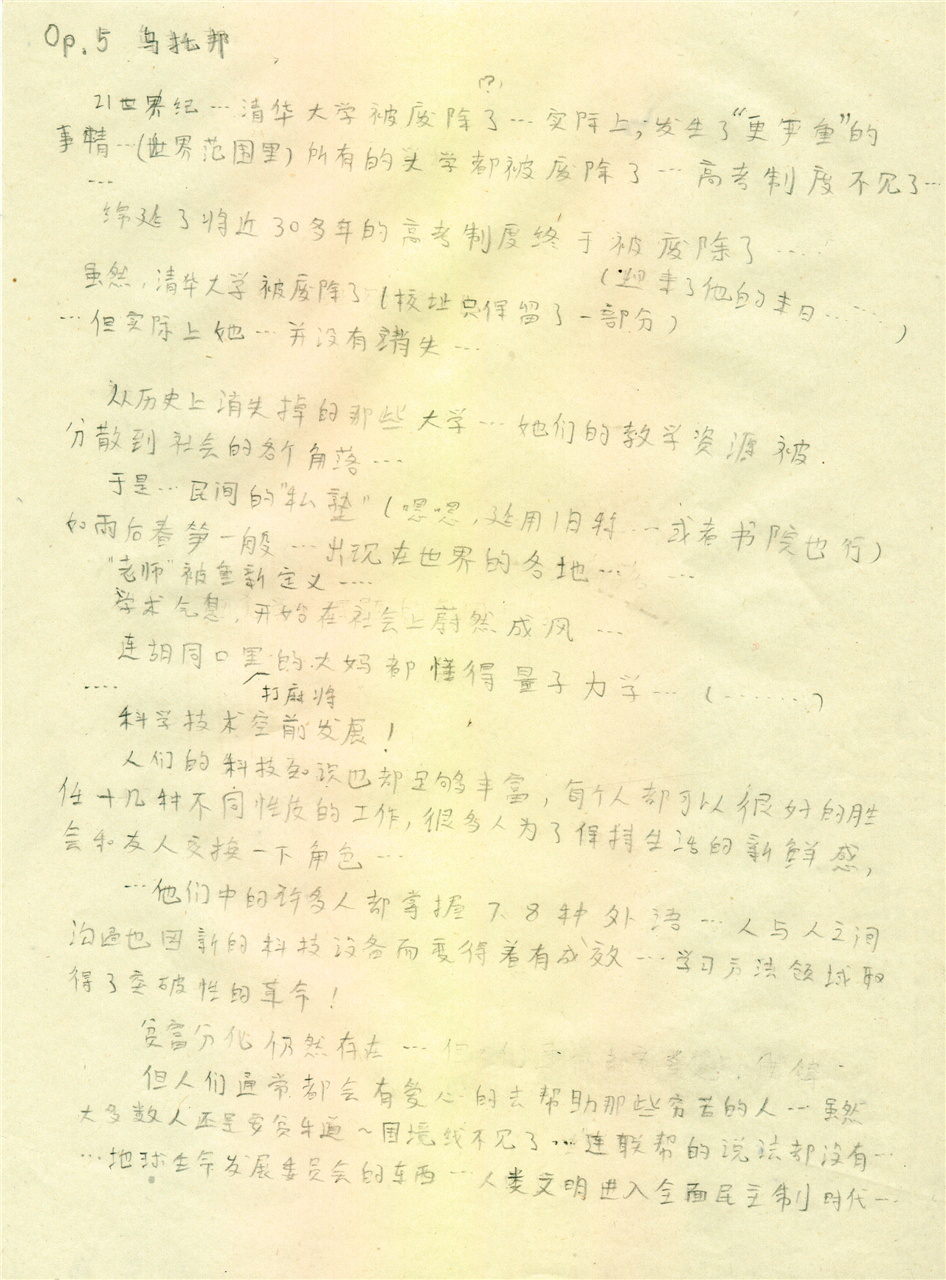 Op.5 乌托邦
(?)
21世界纪…清华大学被废除了…实际上,发生了“更严重”的
事情…(世界范围里)所有的大学都被废除了…高考制度不见了…
…
绵延了将近30多年的高考制度终于被废除了…
(迎来了他的末日……)
虽然,清华大学被废除了(校址只保留了一部分)
…但实际上她…并没有消失…
从历史上消失掉的那些大学…她们的教学资源被
分散到社会的各个角落…
于是…民间的“私塾”(嗯嗯,延用旧称…或者书院也行)
如雨后春笋一般…出现在世界的各地…
“老师”被重新定义…
学术气息,开始在社会上蔚然成风…
连胡同口里的大妈都懂得量子力学…(……)
打麻将
…
科学技术空前发展!
人们的科技知识也都足够丰富,每个人都可以很好的胜
任十几种不同性质的工作,很多人为了保持生活的新鲜感,
会和友人交换一下角色…
…他们中的许多人都掌握7、8种外语…人与人之间
沟通也因新的科技设备而变得着有成效…学习方法领域取
得了突破性的革命!
贫富分化仍然存在…
但人们通常都会有爱心的去帮助那些穷苦的人…虽然
大多数人还是要负车通~国境线不见了…连联帮的说法都没有…
…地球生命发展委员会的东西…人类文明进入全面民主制时代…